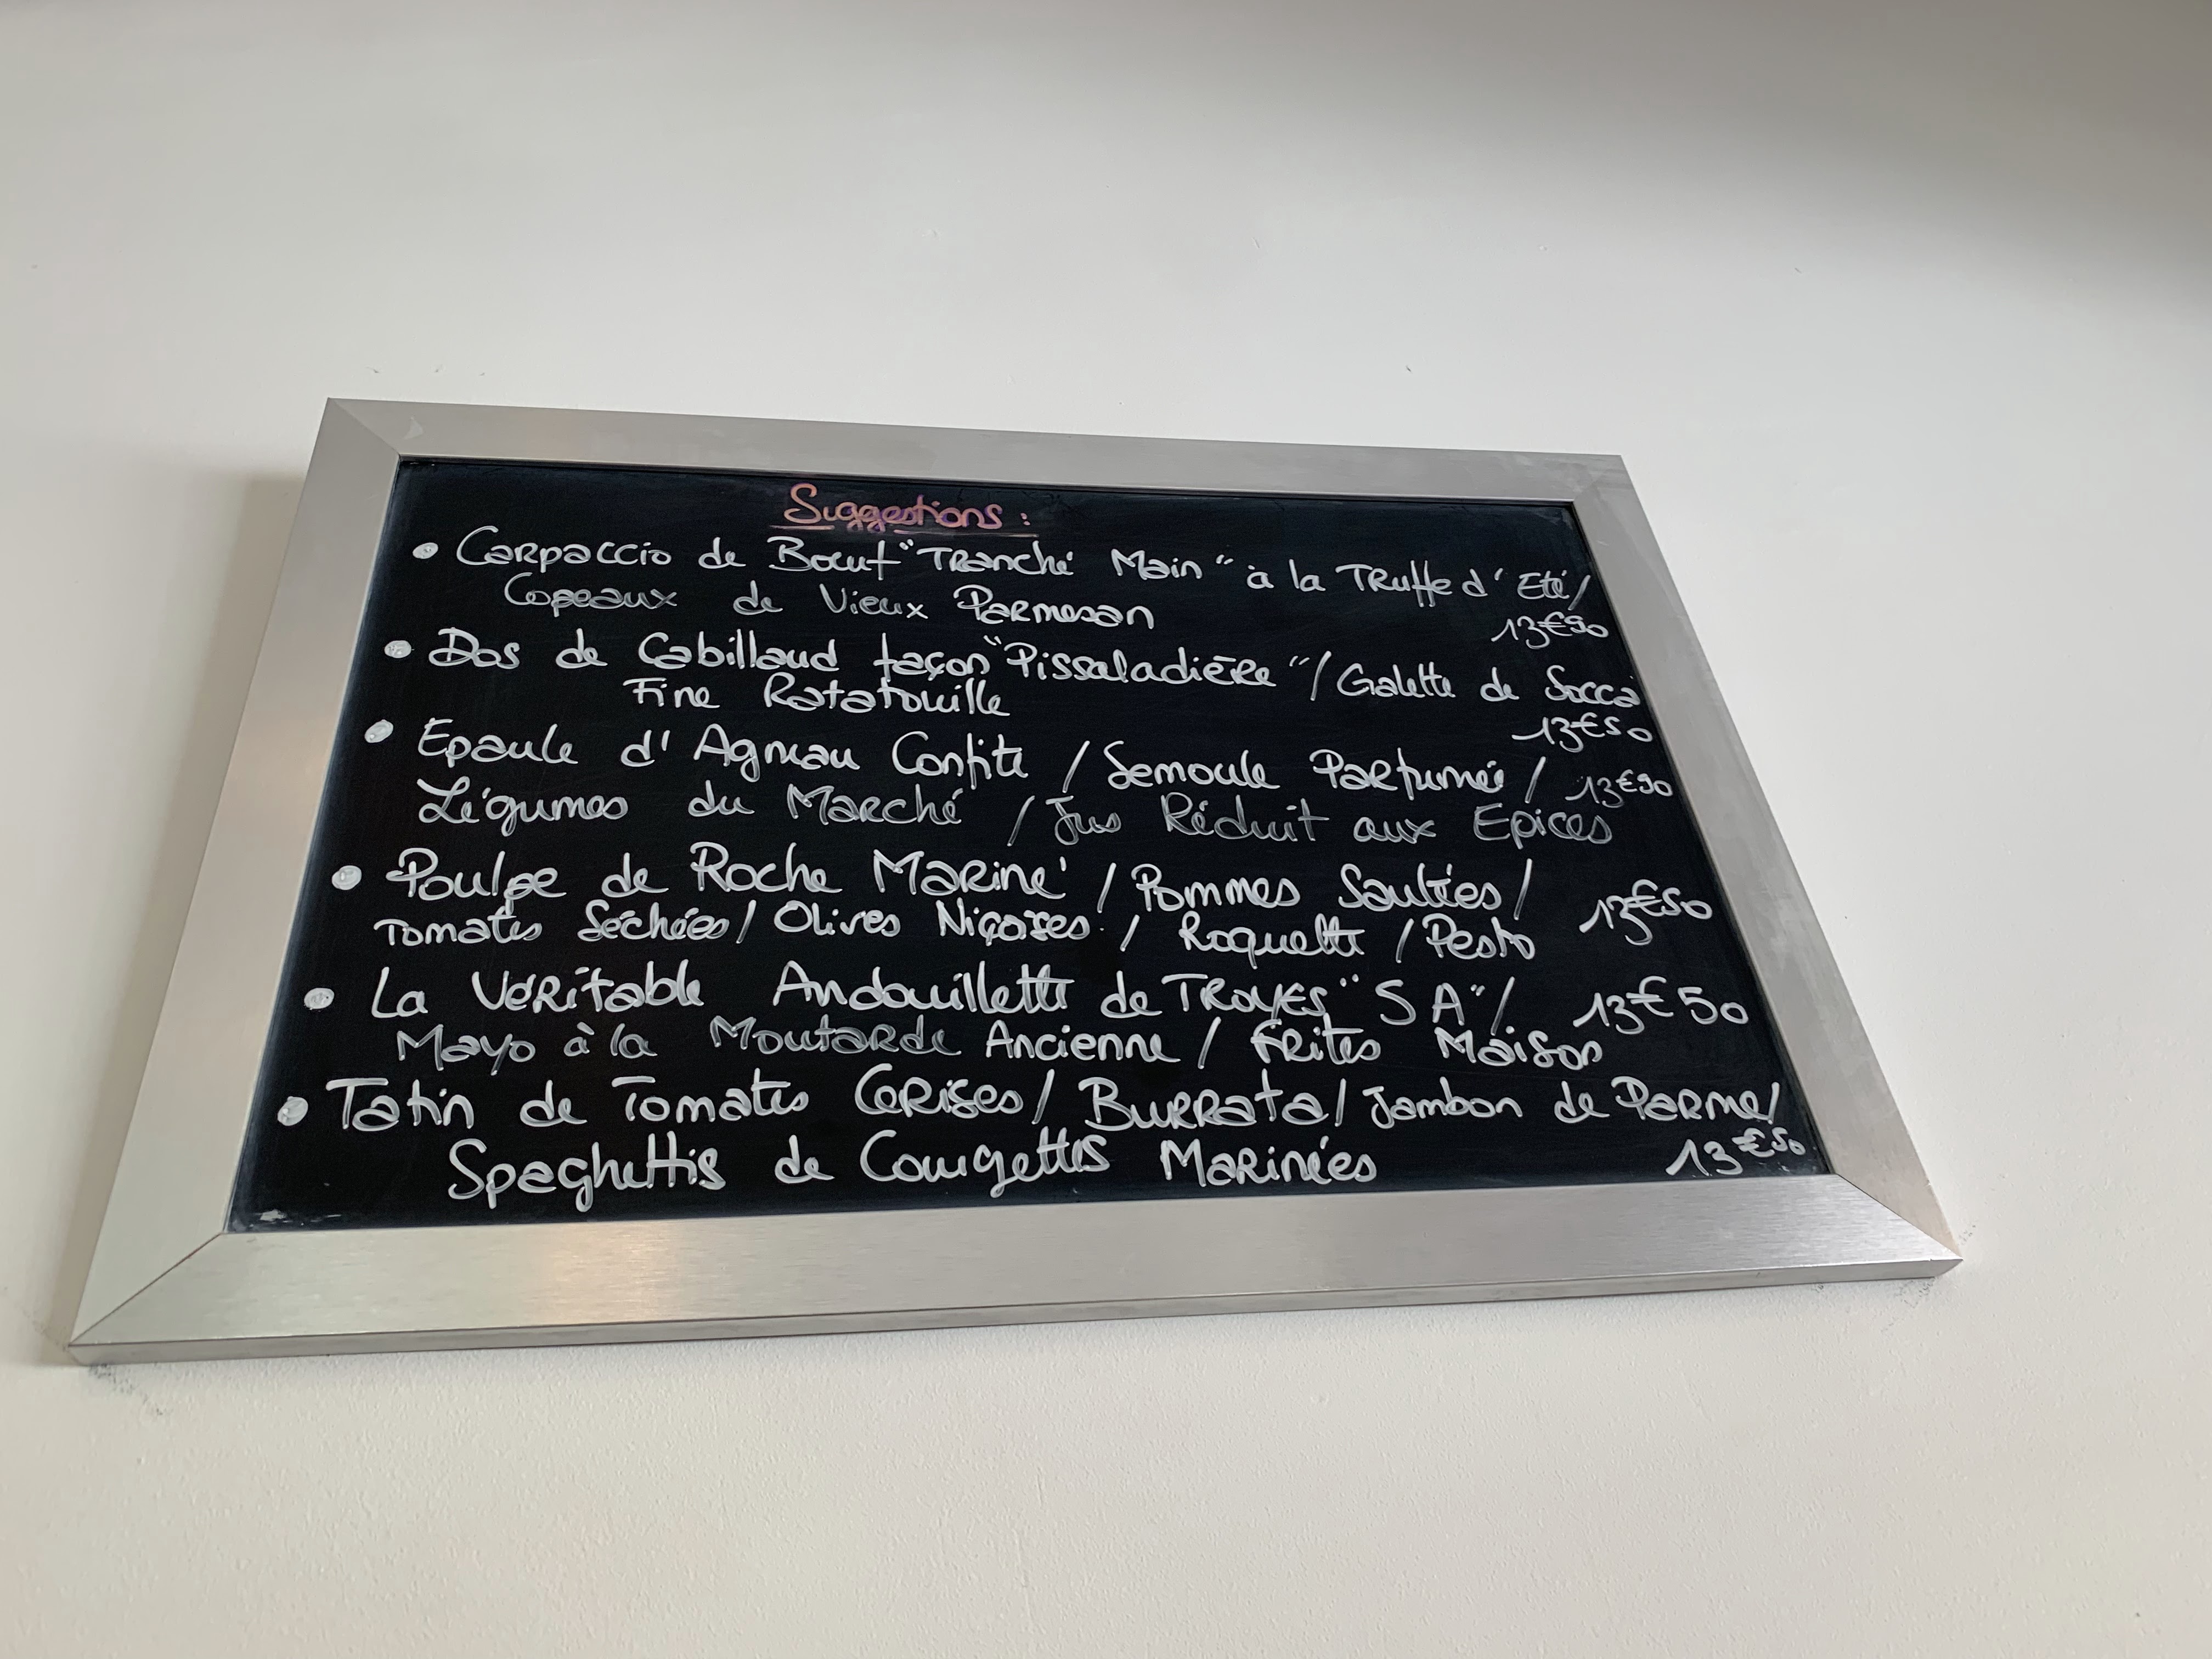 Suggestions :
• Carpaccio de Boeuf "Tranché Main" à la Truffe d'Eté/
Copeaux de Vieux Parmesan 13€90
• Dos de Cabillaud façon "Pissaladière"/Galette de Socca
Fine Ratatouille 13€50
• Epaule d'Agneau Confite / Semoule Parfumée / 13€90
Légumes du Marché / Jus Réduit aux Epices
• Poulpe de Roche Mariné / Pommes Sautées / 13€50
Tomates Séchées / Olives Niçoises / Roquette / Pesto
• La Véritable Andouillette de TROYES "SA" / 13€50
Mayo à la Moutarde Ancienne / Frites Maison
• Tatin de Tomates Cerises / Burrata / Jambon de Parme /
Spaghettis de Courgettes Marinées 13€50